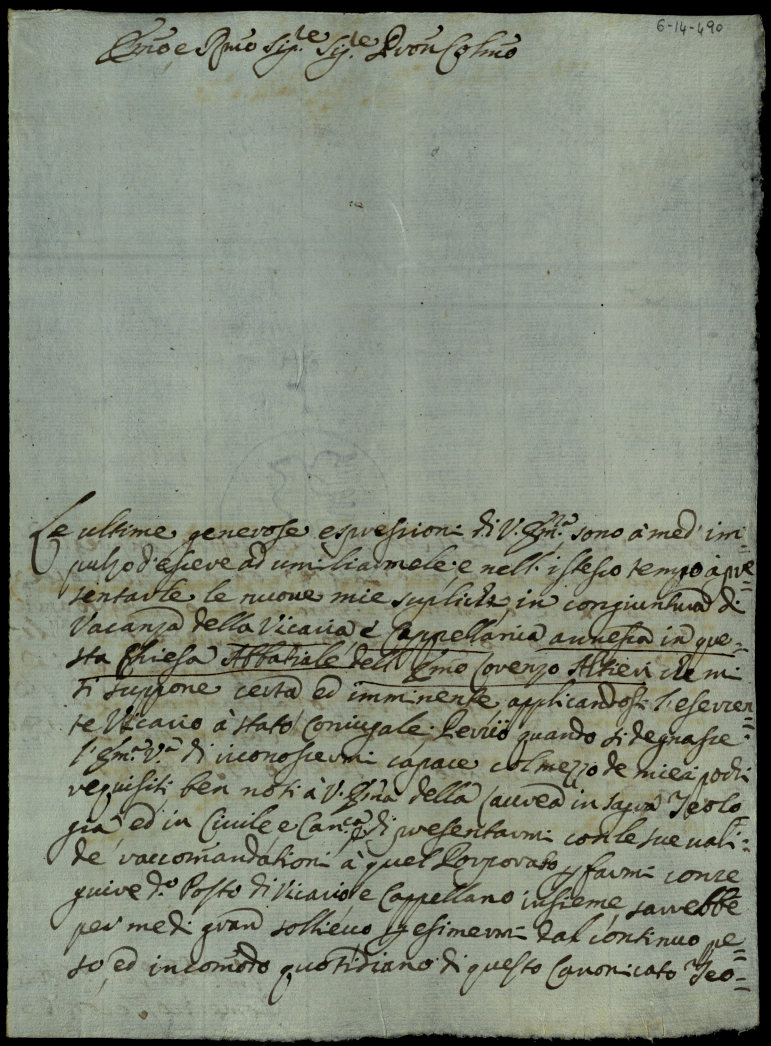 6-14-490
Emo e Rmo Sig.re Sig.re Pron Colmo
Le ultime generose espressioni di V. Em.za sono à me d'im=
pulzo d'essere ad umiliarmele e nell'istesso tempo à pre=
sentarle le nuove mie supliche in congiuntura di
Vacanza della Vicaria e Cappellania annessa in que=
sta Chiesa Abbatiale dell'Emo Lorenzo Altieri che mi
si suppone certa ed imminente applicandosi l'eserven=
te Vicario à stato Coniugale. Perciò quando si degnasse
l'Em.a V.a di riconoscermi capace col mezzo de miei pochi
requisiti ben noti à V. Em.za della Laurea in sagra Teolo
gia ed in Civile e Can.ca di presentarmi con le sue vali=
de raccomandationi à quel Porporato, e farmi conse
guire d.o Posto di Vicario e Cappellano insieme sarrebbe
per me di gran sollievo p esimermi dal continuo pe=
so, ed incomodo quotidiano di questo Canonicato Teo=